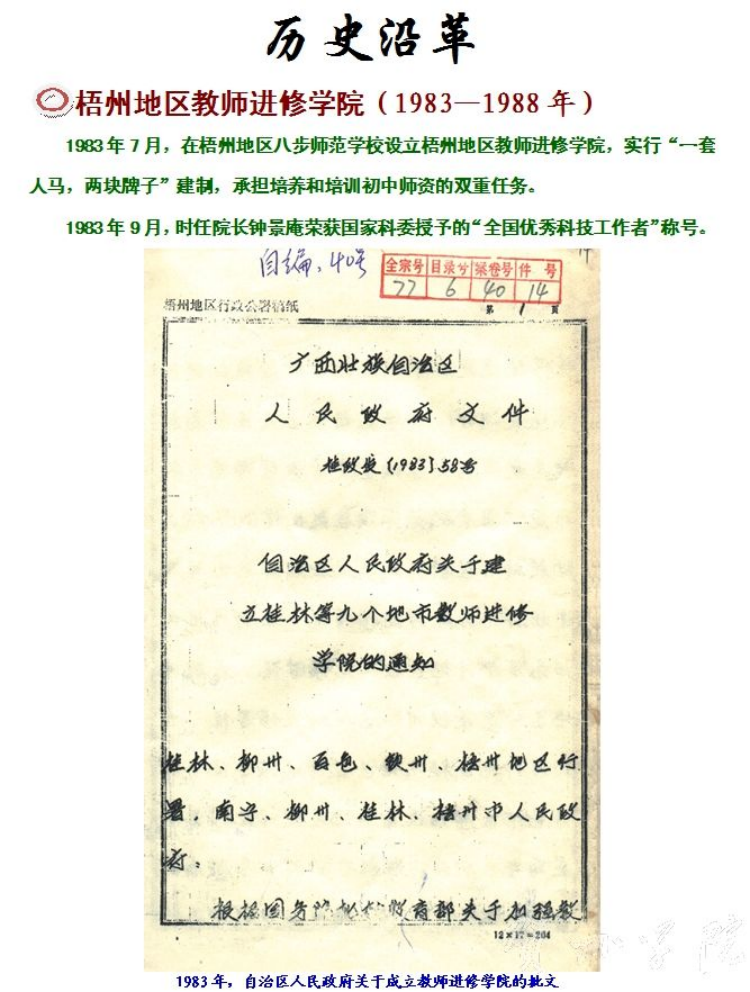 历史沿革
梧州地区教师进修学院（1983—1988 年）
1983 年 7 月，在梧州地区八步师范学校设立梧州地区教师进修学院，实行“一套
人马，两块牌子”建制，承担培养和培训初中师资的双重任务。
1983 年 9 月，时任院长钟景庵荣获国家科委授予的“全国优秀科技工作者”称号。
自编，40号
全宗号 目录号 案卷号 件 号
77 6 40 14
梧州地区行政公署稿纸
第 1 页
广西壮族自治区
人民政府文件
桂政发（1983）58号
自治区人民政府关于建
立桂林等九个地市教师进修
学院的通知
桂林、柳州、百色、钦州、梧州地区行
署，南宁、柳州、桂林、梧州市人民政
府：
根据国务院批转教育部关于加强教
12×17=204
贺州学院
1983 年，自治区人民政府关于成立教师进修学院的批文